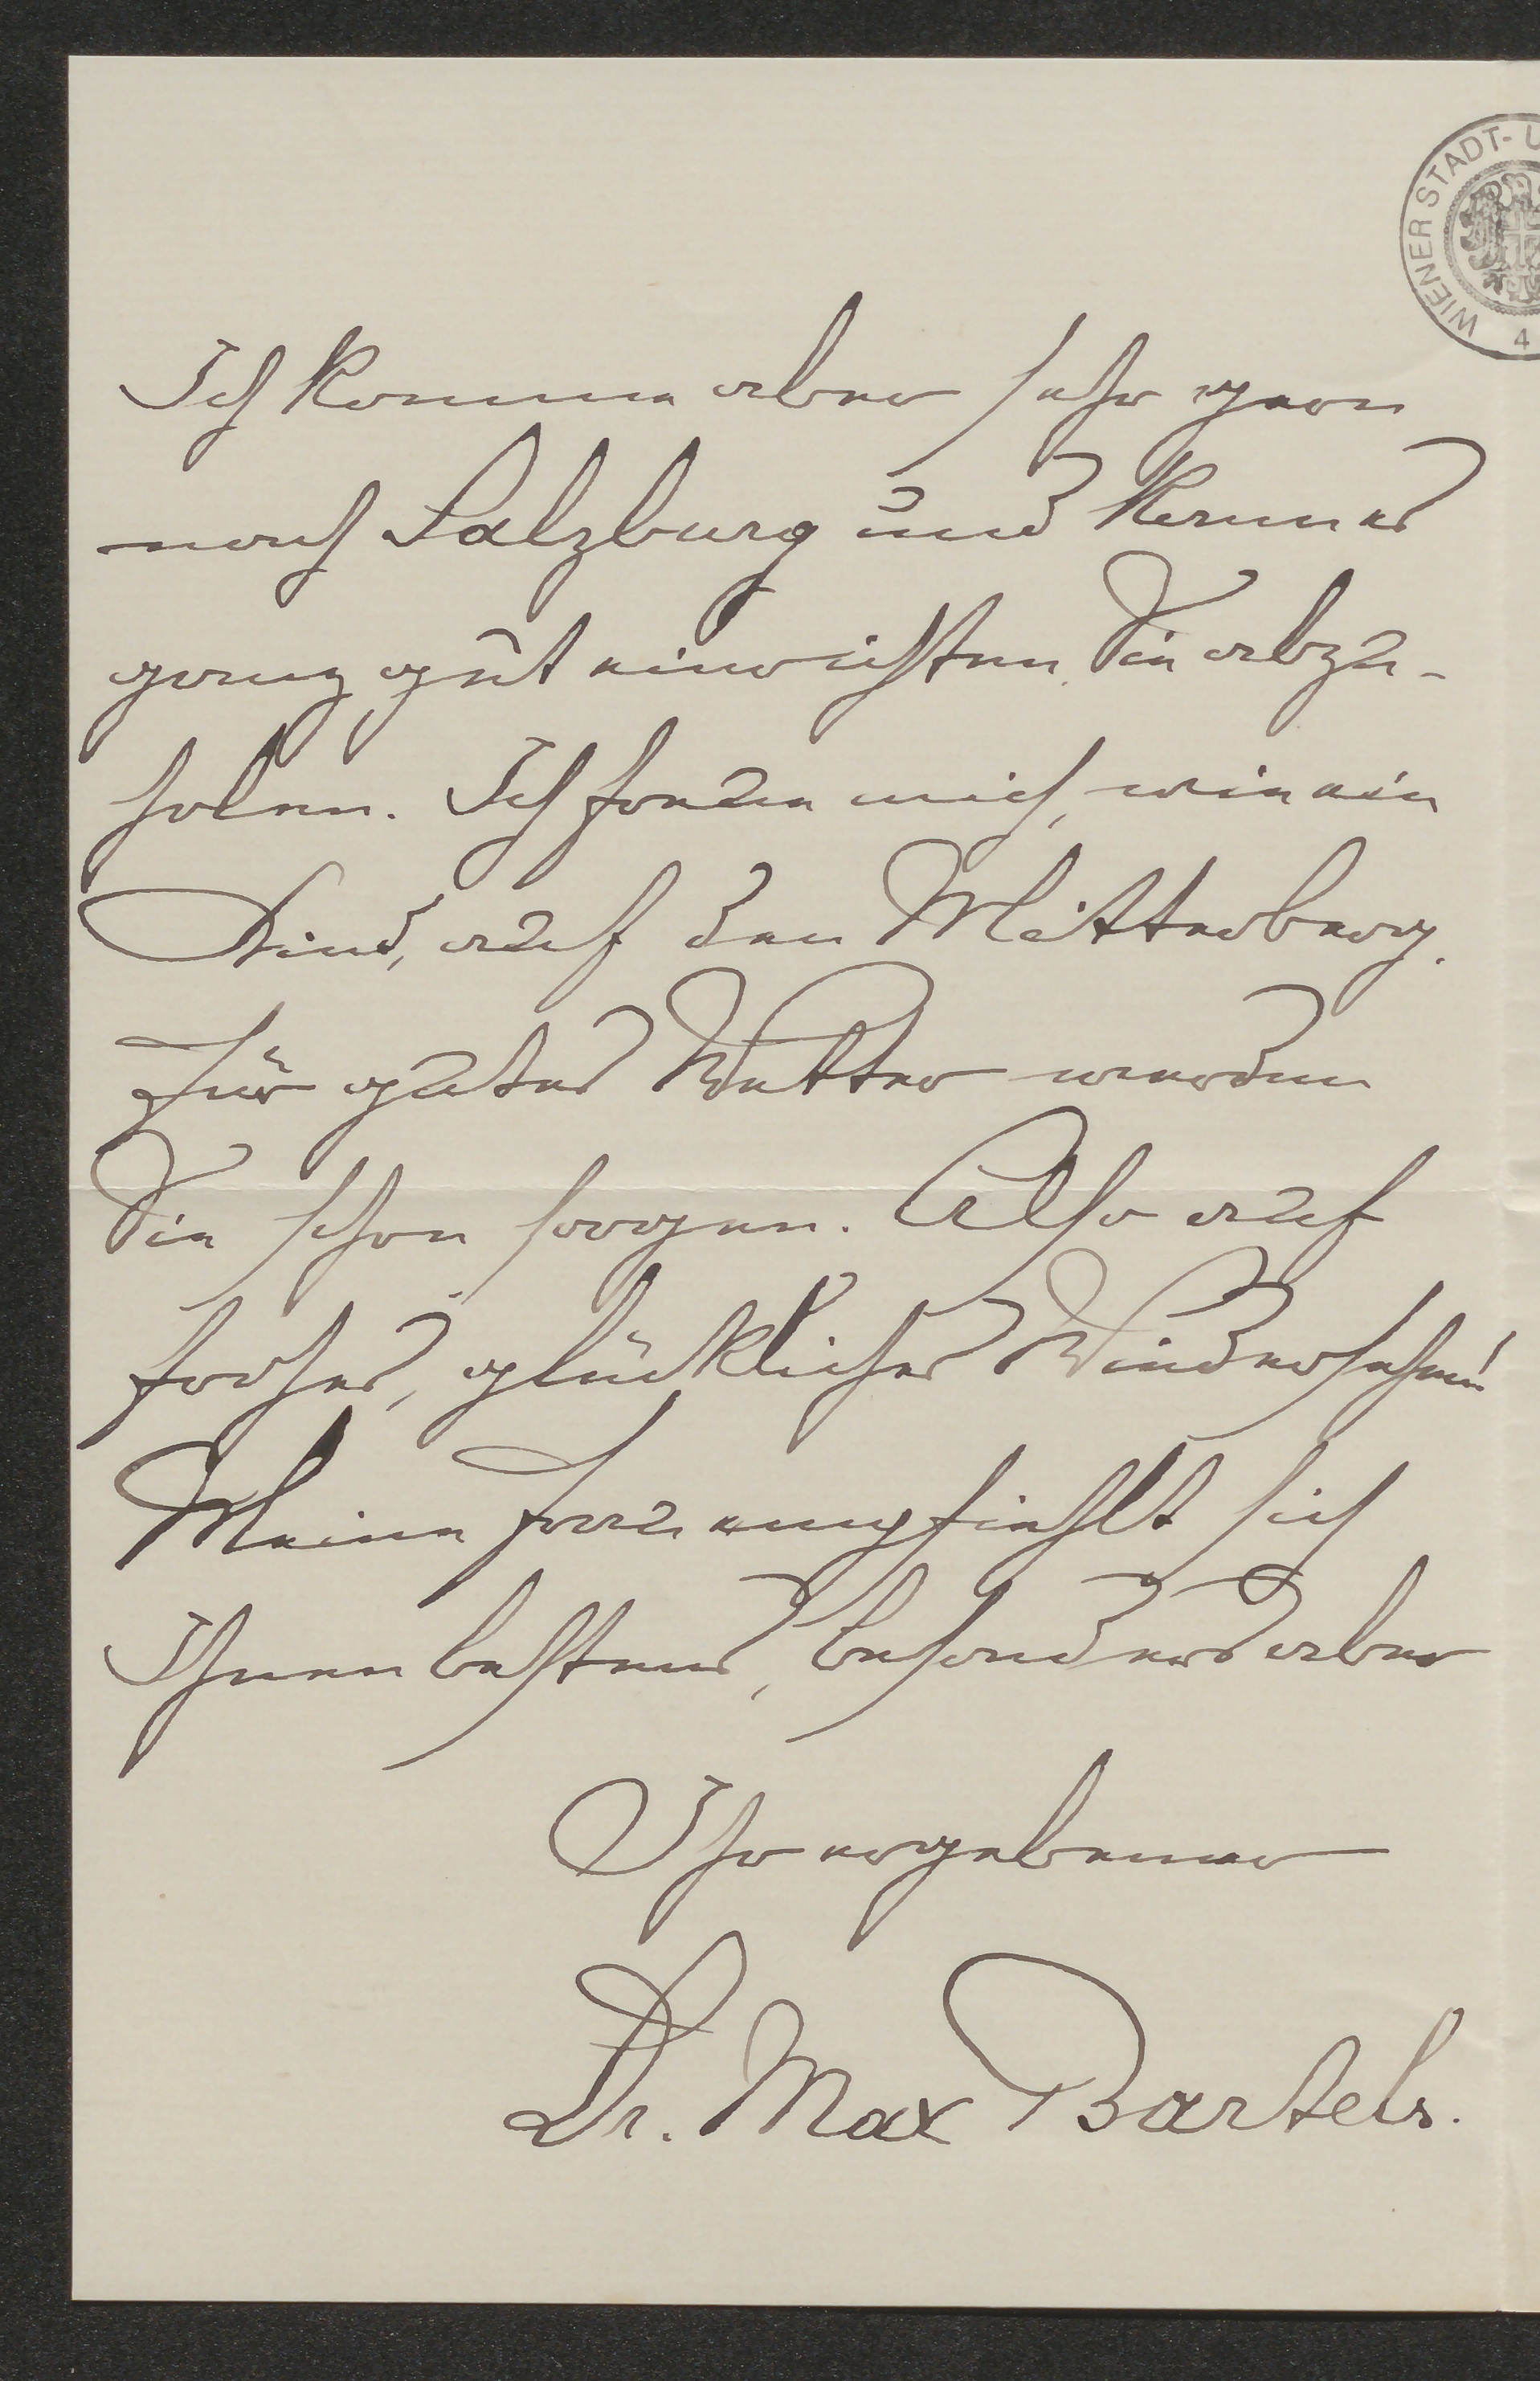 WIENER STADT- U
4
Ich komme aber sehr gern
nach Salzburg und kann es
ganz gut einrichten, Sie abzu-
holen. Ich freue mich, wie ein
Kind, auf den Mitterberg.
Für gutes Wetter werden
Sie schon sorgen. Also auf
frohes, glückliches Wiedersehen!
Meine Frau empfiehlt sich
Ihnen bestens, besonders aber
Ihr ergebener
Dr. Max Bartels.